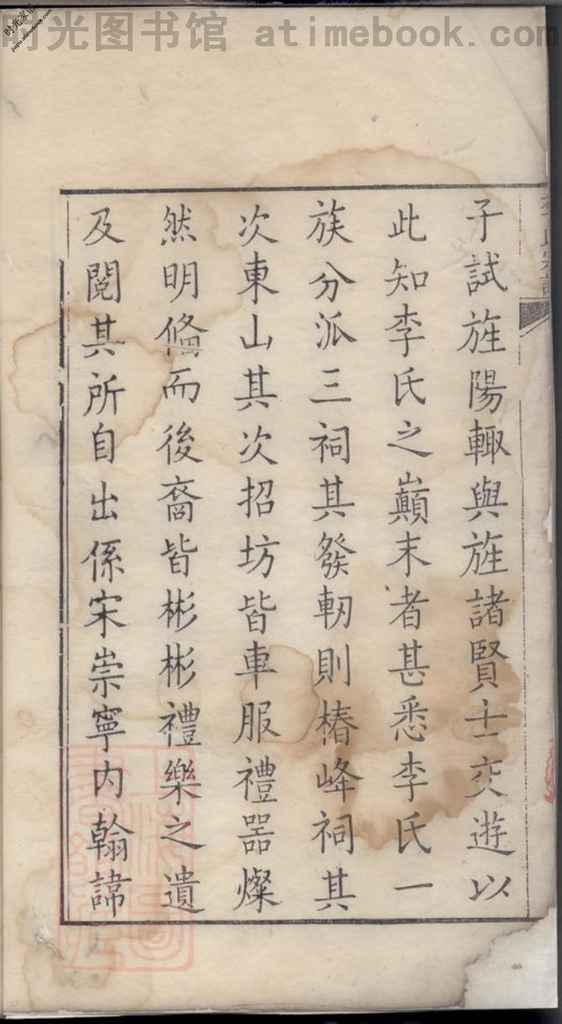 时光图书馆 atimebook.com
子試旌陽輙與旌諸賢士交遊以
此知李氏之巔末者甚悉李氏一
族分派三祠其發軔則椿峰祠其
次東山其次招坊皆車服禮器燦
然明脩而後裔皆彬彬禮樂之遺
及閱其所自出係宋崇寧內翰諱